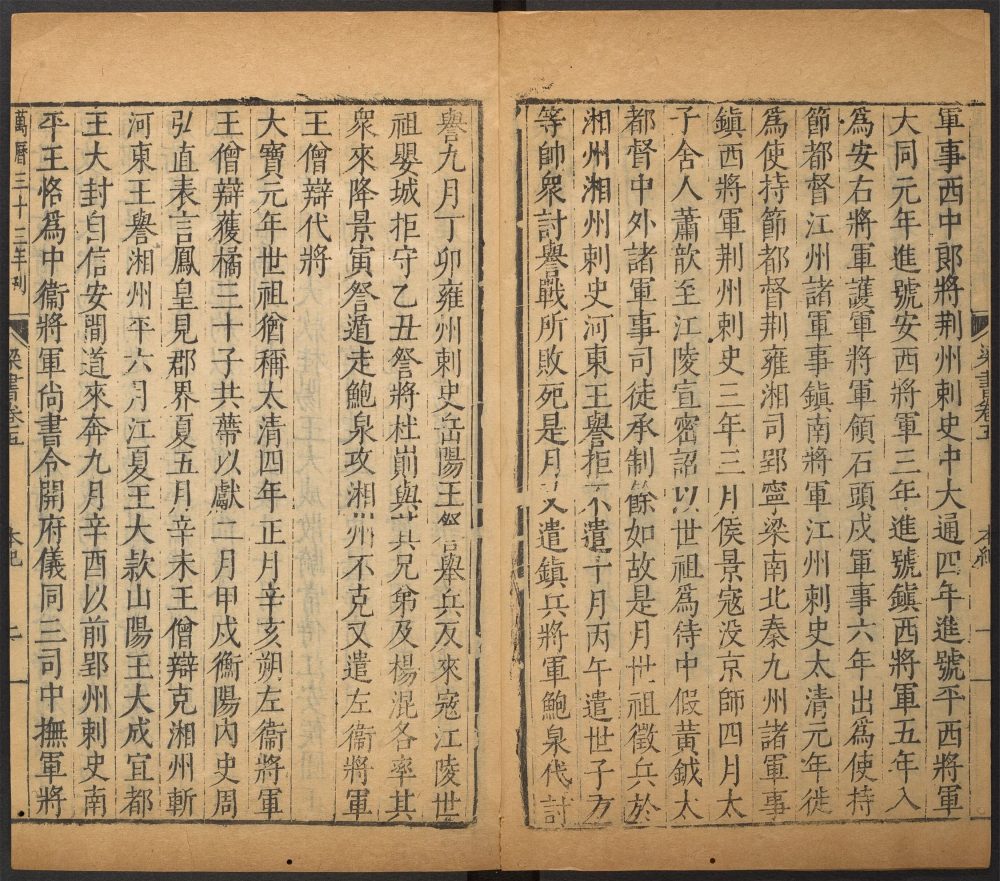 軍事西中郎將荆州刺史中大通四年進號平西將軍
大同元年進號安西將軍三年進號鎮西將軍五年入
爲安右將軍護軍將軍領石頭戍軍事六年出爲使持
節都督江州諸軍事鎮南將軍江州刺史太清元年徙
爲使持節都督荆雍湘司郢寧梁南北秦九州諸軍事
鎮西將軍荆州刺史三年三月侯景寇没京師四月太
子舍人蕭歆至江陵宣密詔以世祖爲侍中假黃鉞太
都督中外諸軍事司徒承制餘如故是月世祖徵兵於
湘州湘州刺史河東王譽拒不遣十月丙午遣世子方
等帥衆討譽戰所敗死是月又遣鎮兵將軍鮑泉代討
梁書卷五
本紀
譽九月丁卯雍州刺史岳陽王詧舉兵反來寇江陵世
祖嬰城拒守乙丑詧將杜崱與其兄弟及楊混各率其
衆來降景寅詧遁走鮑泉攻湘州不克又遣左衞將軍
王僧辯代將
大寶元年世祖猶稱太清四年正月辛亥朔左衞將軍
王僧辯獲橘三十子共蔕以獻二月甲戌衡陽內史周
弘直表言鳳皇見郡界夏五月辛未王僧辯克湘州斬
河東王譽湘州平六月江夏王大款山陽王大成宜都
王大封自信安間道來奔九月辛酉以前郢州刺史南
平王恪爲中衞將軍尚書令開府儀同三司中撫軍將
萬曆三十三年刋
梁書卷五
本紀
二